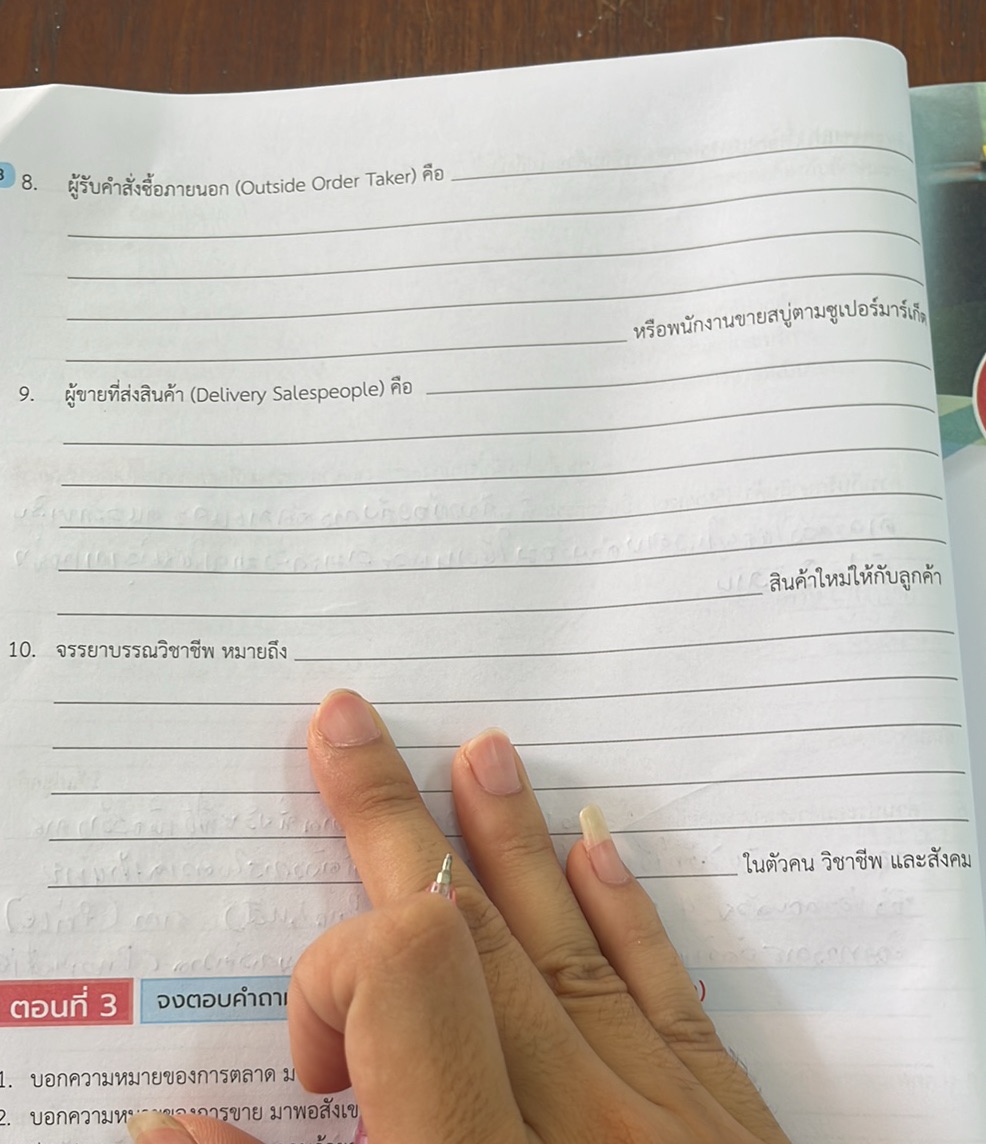 8. ผู้รับคำสั่งซื้อภายนอก (Outside Order Taker) คือ
หรือพนักงานขายสบู่ตามซูเปอร์มาร์เก็ต
9. ผู้ขายที่ส่งสินค้า (Delivery Salespeople) คือ
สินค้าใหม่ให้กับลูกค้า
10. จรรยาบรรณวิชาชีพ หมายถึง
ในตัวคน วิชาชีพ และสังคม
ตอนที่ 3 จงตอบคำถา
1. บอกความหมายของการตลาด ม
2. บอกความห การขาย มาพอสังเข